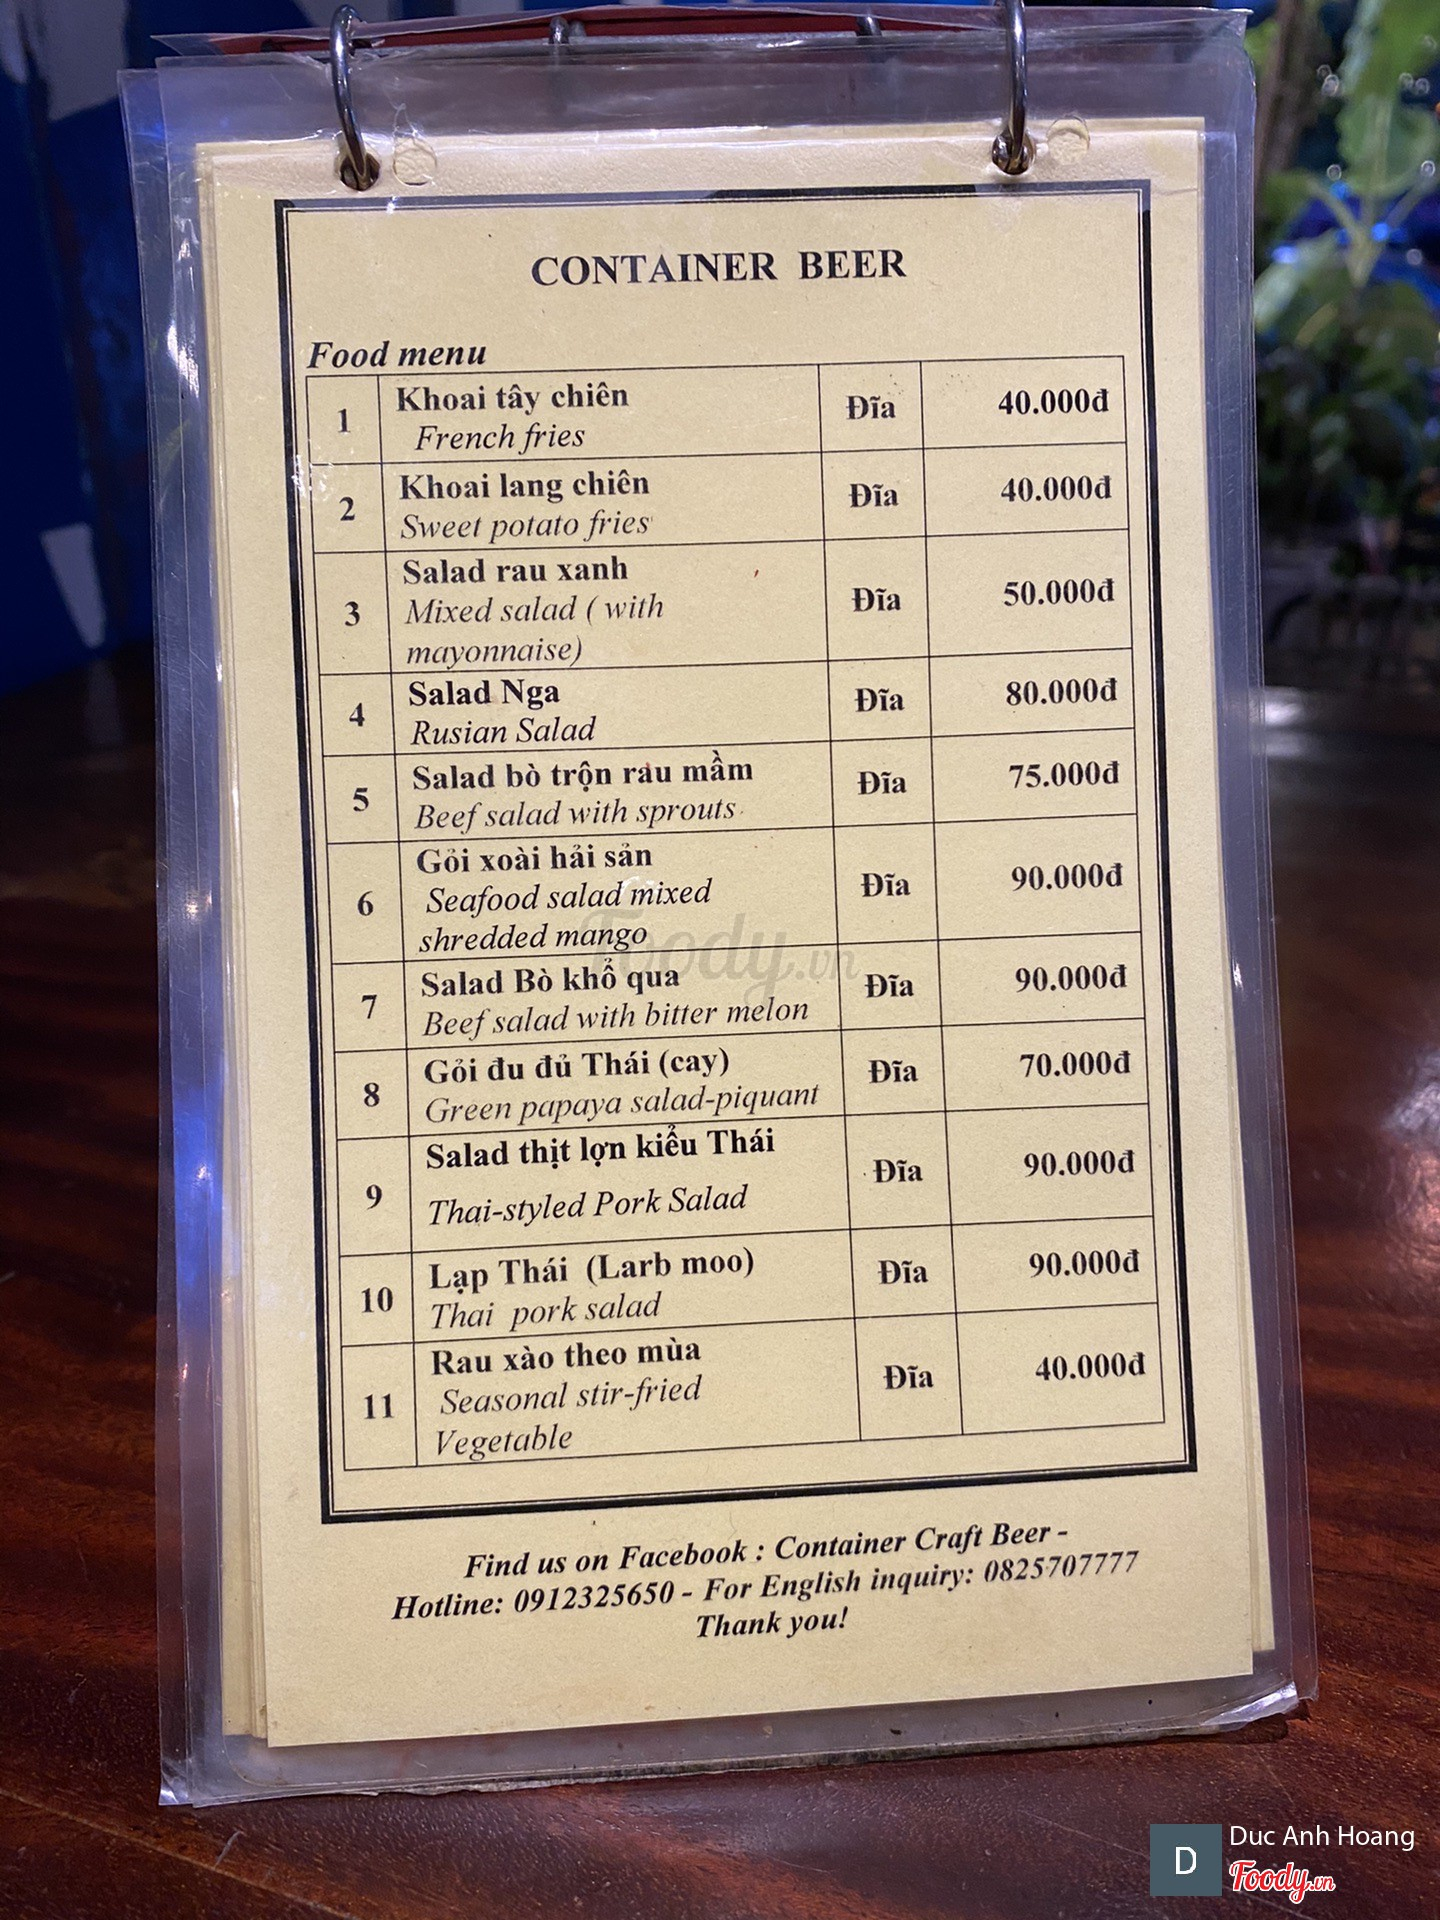 CONTAINER BEER
Food menu
1 Khoai tây chiên Đĩa 40.000đ
French fries
2 Khoai lang chiên Đĩa 40.000đ
Sweet potato fries
3 Salad rau xanh Đĩa 50.000đ
Mixed salad ( with
mayonnaise)
4 Salad Nga Đĩa 80.000đ
Rusian Salad
5 Salad bò trộn rau mầm Đĩa 75.000đ
Beef salad with sprouts
6 Gỏi xoài hải sản Đĩa 90.000đ
Seafood salad mixed
shredded mango
7 Salad Bò khổ qua Đĩa 90.000đ
Beef salad with bitter melon
8 Gỏi đu đủ Thái (cay) Đĩa 70.000đ
Green papaya salad-piquant
9 Salad thịt lợn kiểu Thái Đĩa 90.000đ
Thai-styled Pork Salad
10 Lạp Thái (Larb moo) Đĩa 90.000đ
Thai pork salad
11 Rau xào theo mùa Đĩa 40.000đ
Seasonal stir-fried
Vegetable
Find us on Facebook : Container Craft Beer -
Hotline: 0912325650 - For English inquiry: 0825707777
Thank you!
Foody.vn
D Duc Anh Hoang
Foody.vn